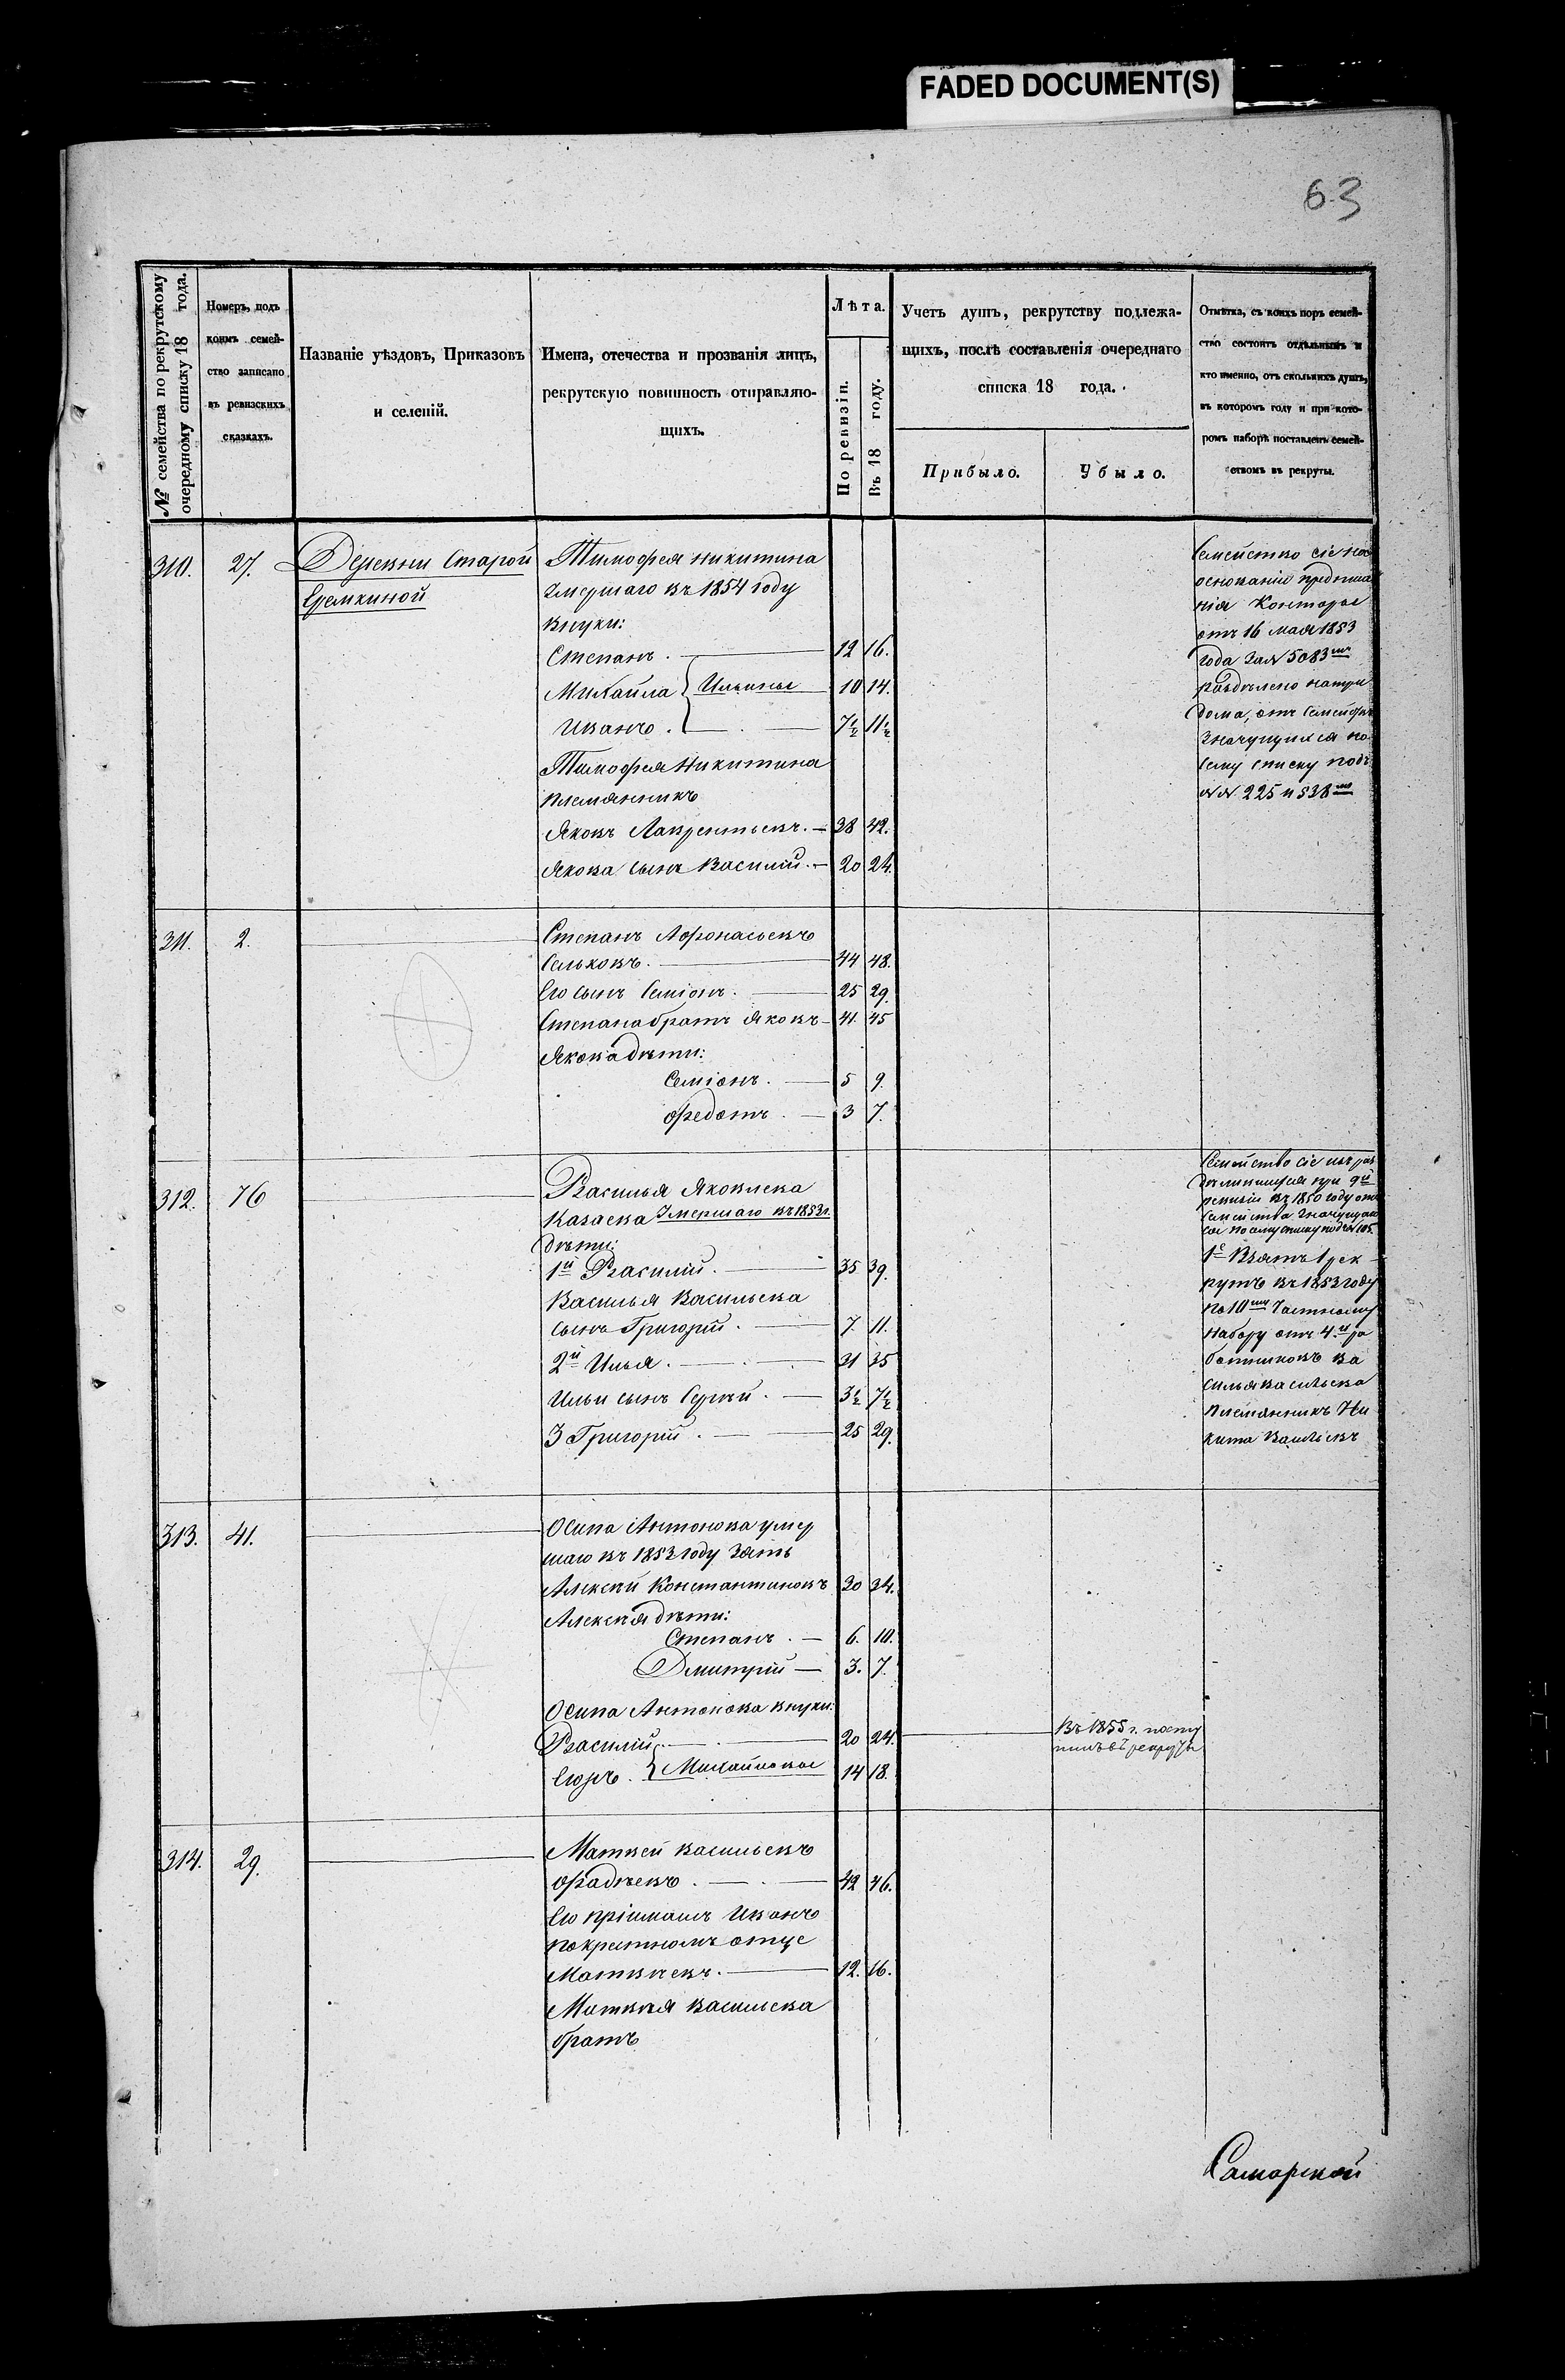 FADED DOCUMENT(S)
63
№ семейства по рекрутскому очередному списку 18 года.
Номеръ, подъ
коимъ семей-
ство записано
въ ревизскихъ
сказкахъ.
Названіе уѣздовъ, Приказовъ
и селеній.
Имена, отечества и прозванія лицъ,
рекрутскую повинность отправляю-
щихъ.
Лѣта.
По ревизіи.
Въ 18 году.
Учетъ душъ, рекрутству подлежа-
щихъ, послѣ составленія очереднаго
списка 18 года.
Прибыло.
Убыло.
Отмѣтка, съ коихъ поръ семей-
ство состоитъ отдѣльнымъ и
кто именно, отъ сколькихъ душъ,
въ которомъ году и при кото-
ромъ наборѣ поставленъ семей-
ствомъ въ рекруты.
310. 27. Деревни Старой
Еремкиной
Тимофея Никитина
умершаго въ 1854 году
внуки:
Степанъ. 12 16.
Михайла Ильины 10 14.
Иванъ. 7½ 11½
Тимофея Никитина
племянникъ
Яковъ Лаврентьевъ. 38 42.
Якова сынъ Василій. 20 24.
Семейство сіе на
основаніи предписа
нія Конторы
отъ 16 мая 1853
года за № 5083мъ
раздѣлено на три
дома, отъ семействъ
значущихся по
сему списку подъ
№№ 225 и 538мъ
311. 2.
Степанъ Афонасьевъ
Сельковъ. 44 48.
Его сынъ Семіонъ. 25 29.
Степана братъ Яковъ 41. 45
Якова дѣти:
Семіонъ. 5 9.
Федотъ. 3 7.
312. 76
Василья Яковлева
Казаева умершаго въ 1853 г.
дѣти:
1й Василій. 35 39.
Василья Васильева
сынъ Григорій. 7. 11.
2й Илья. 31 35
Ильи сынъ Сергѣй. 3½ 7½
3 Григорій. 25 29.
Семейство сіе изъ раз
дѣлившихся при 9й
ревизіи въ 1850 году отъ
семейства значущаго
ся по сему списку подъ № 105.
1е Взятъ 1 рек
рутъ въ 1853 году
по 10му частному
набору отъ 4й ра
ботниковъ Ва
силья Васильева
племянникъ Ни
кита Васильевъ
313. 41.
Осипа Антонова умер
шаго въ 1853 году зять
Алексѣй Константиновъ 30 34.
Алексѣя дѣти:
Степанъ. 6. 10.
Дмитрій 3. 7.
Осипа Антонова внуки:
Василій 20 24.
Егоръ. Михайловы 14 18.
Въ 1855 г. посту
пилъ въ рекруты
314. 29.
Матвей Васильевъ
Фадѣевъ. 42 46.
Его пріимышъ Иванъ
по крестномъ отце
Матвѣевъ. 12. 16.
Матвѣя Васильева
братъ
Самарской